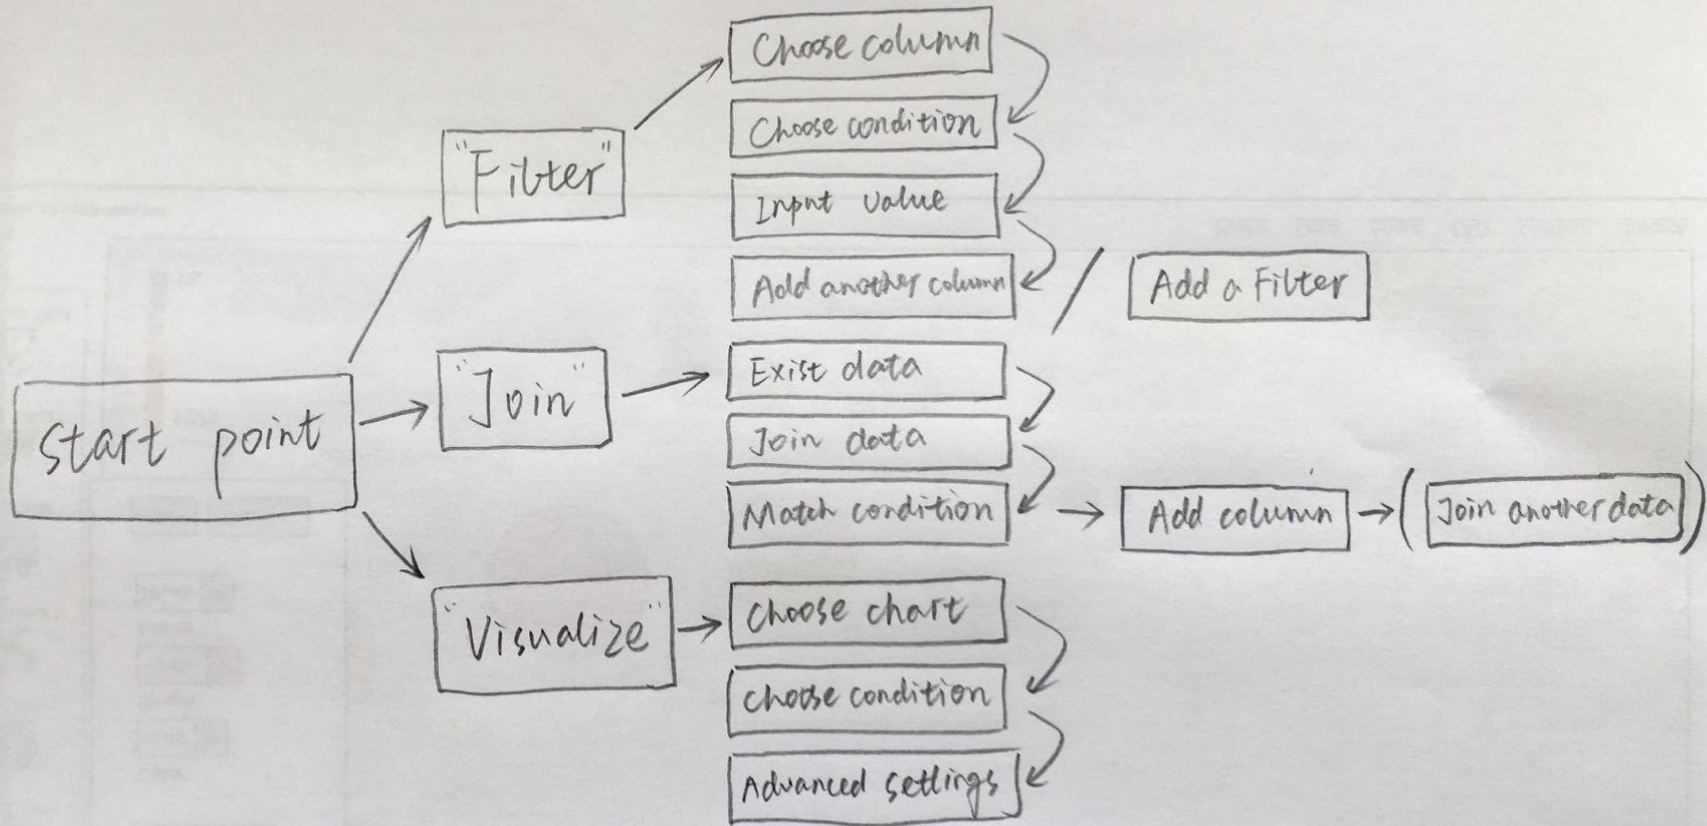 Start point
"Filter"
Choose column
Choose condition
Input value
Add another column / Add a Filter
"Join"
Exist data
Join data
Match condition
Add column
(Join another data)
"Visualize"
Choose chart
Choose condition
Advanced settings